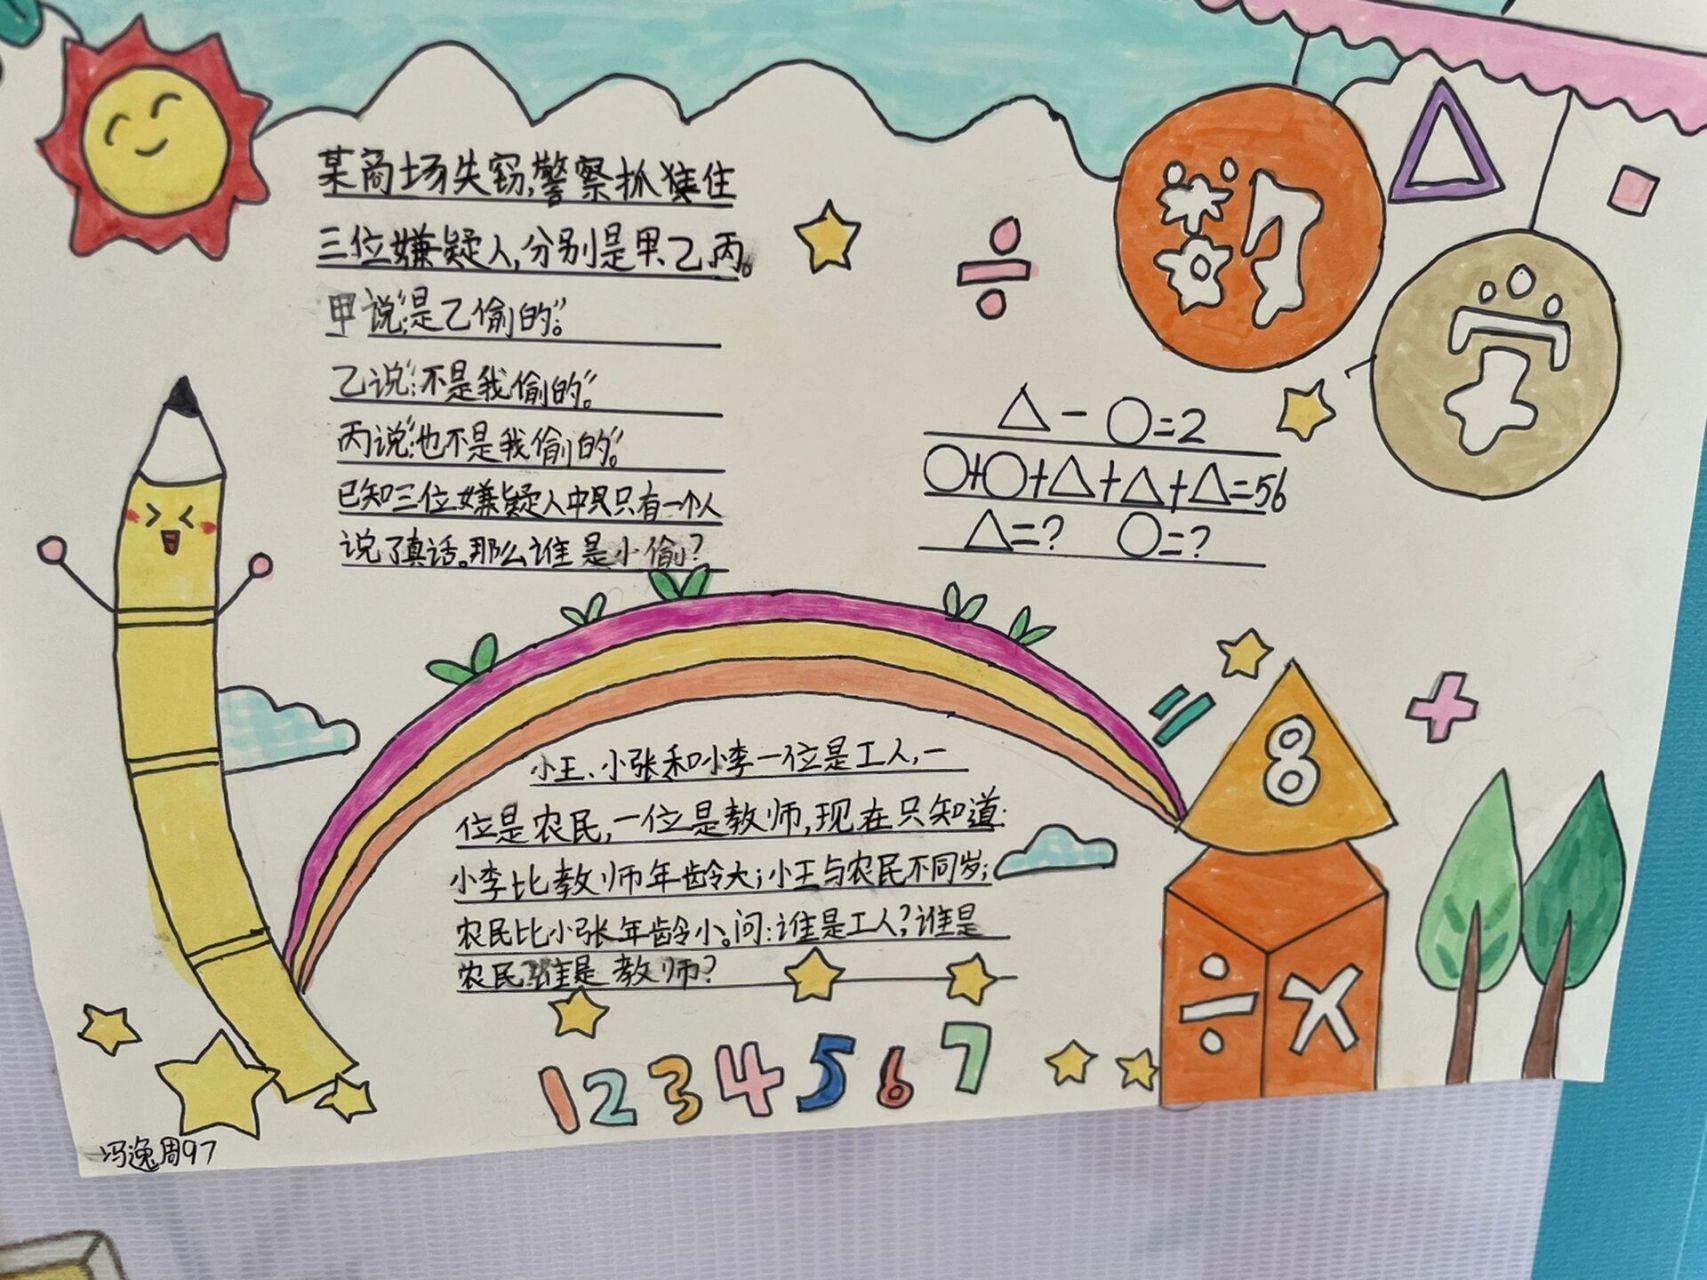 某商场失窃,警察抓住
三位嫌疑人,分别是甲、乙、丙。
甲说:“是乙偷的。”
乙说:“不是我偷的。”
丙说:“也不是我偷的。”
已知三位嫌疑人中只有一个人
说了真话。那么谁是小偷?
数学
△-○=2
○+○+△+△+△=56
△=? ○=?
小王、小张和小李一位是工人,一
位是农民,一位是教师,现在只知道:
小李比教师年龄大;小王与农民不同岁;
农民比小张年龄小。问:谁是工人?谁是
农民?谁是教师?
8
÷ ×
1 2 3 4 5 6 7
冯逸周97